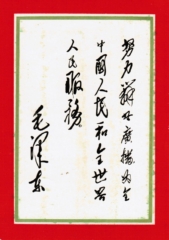 努力办好广播为全
中國人民和全世界
人民服務
毛泽东